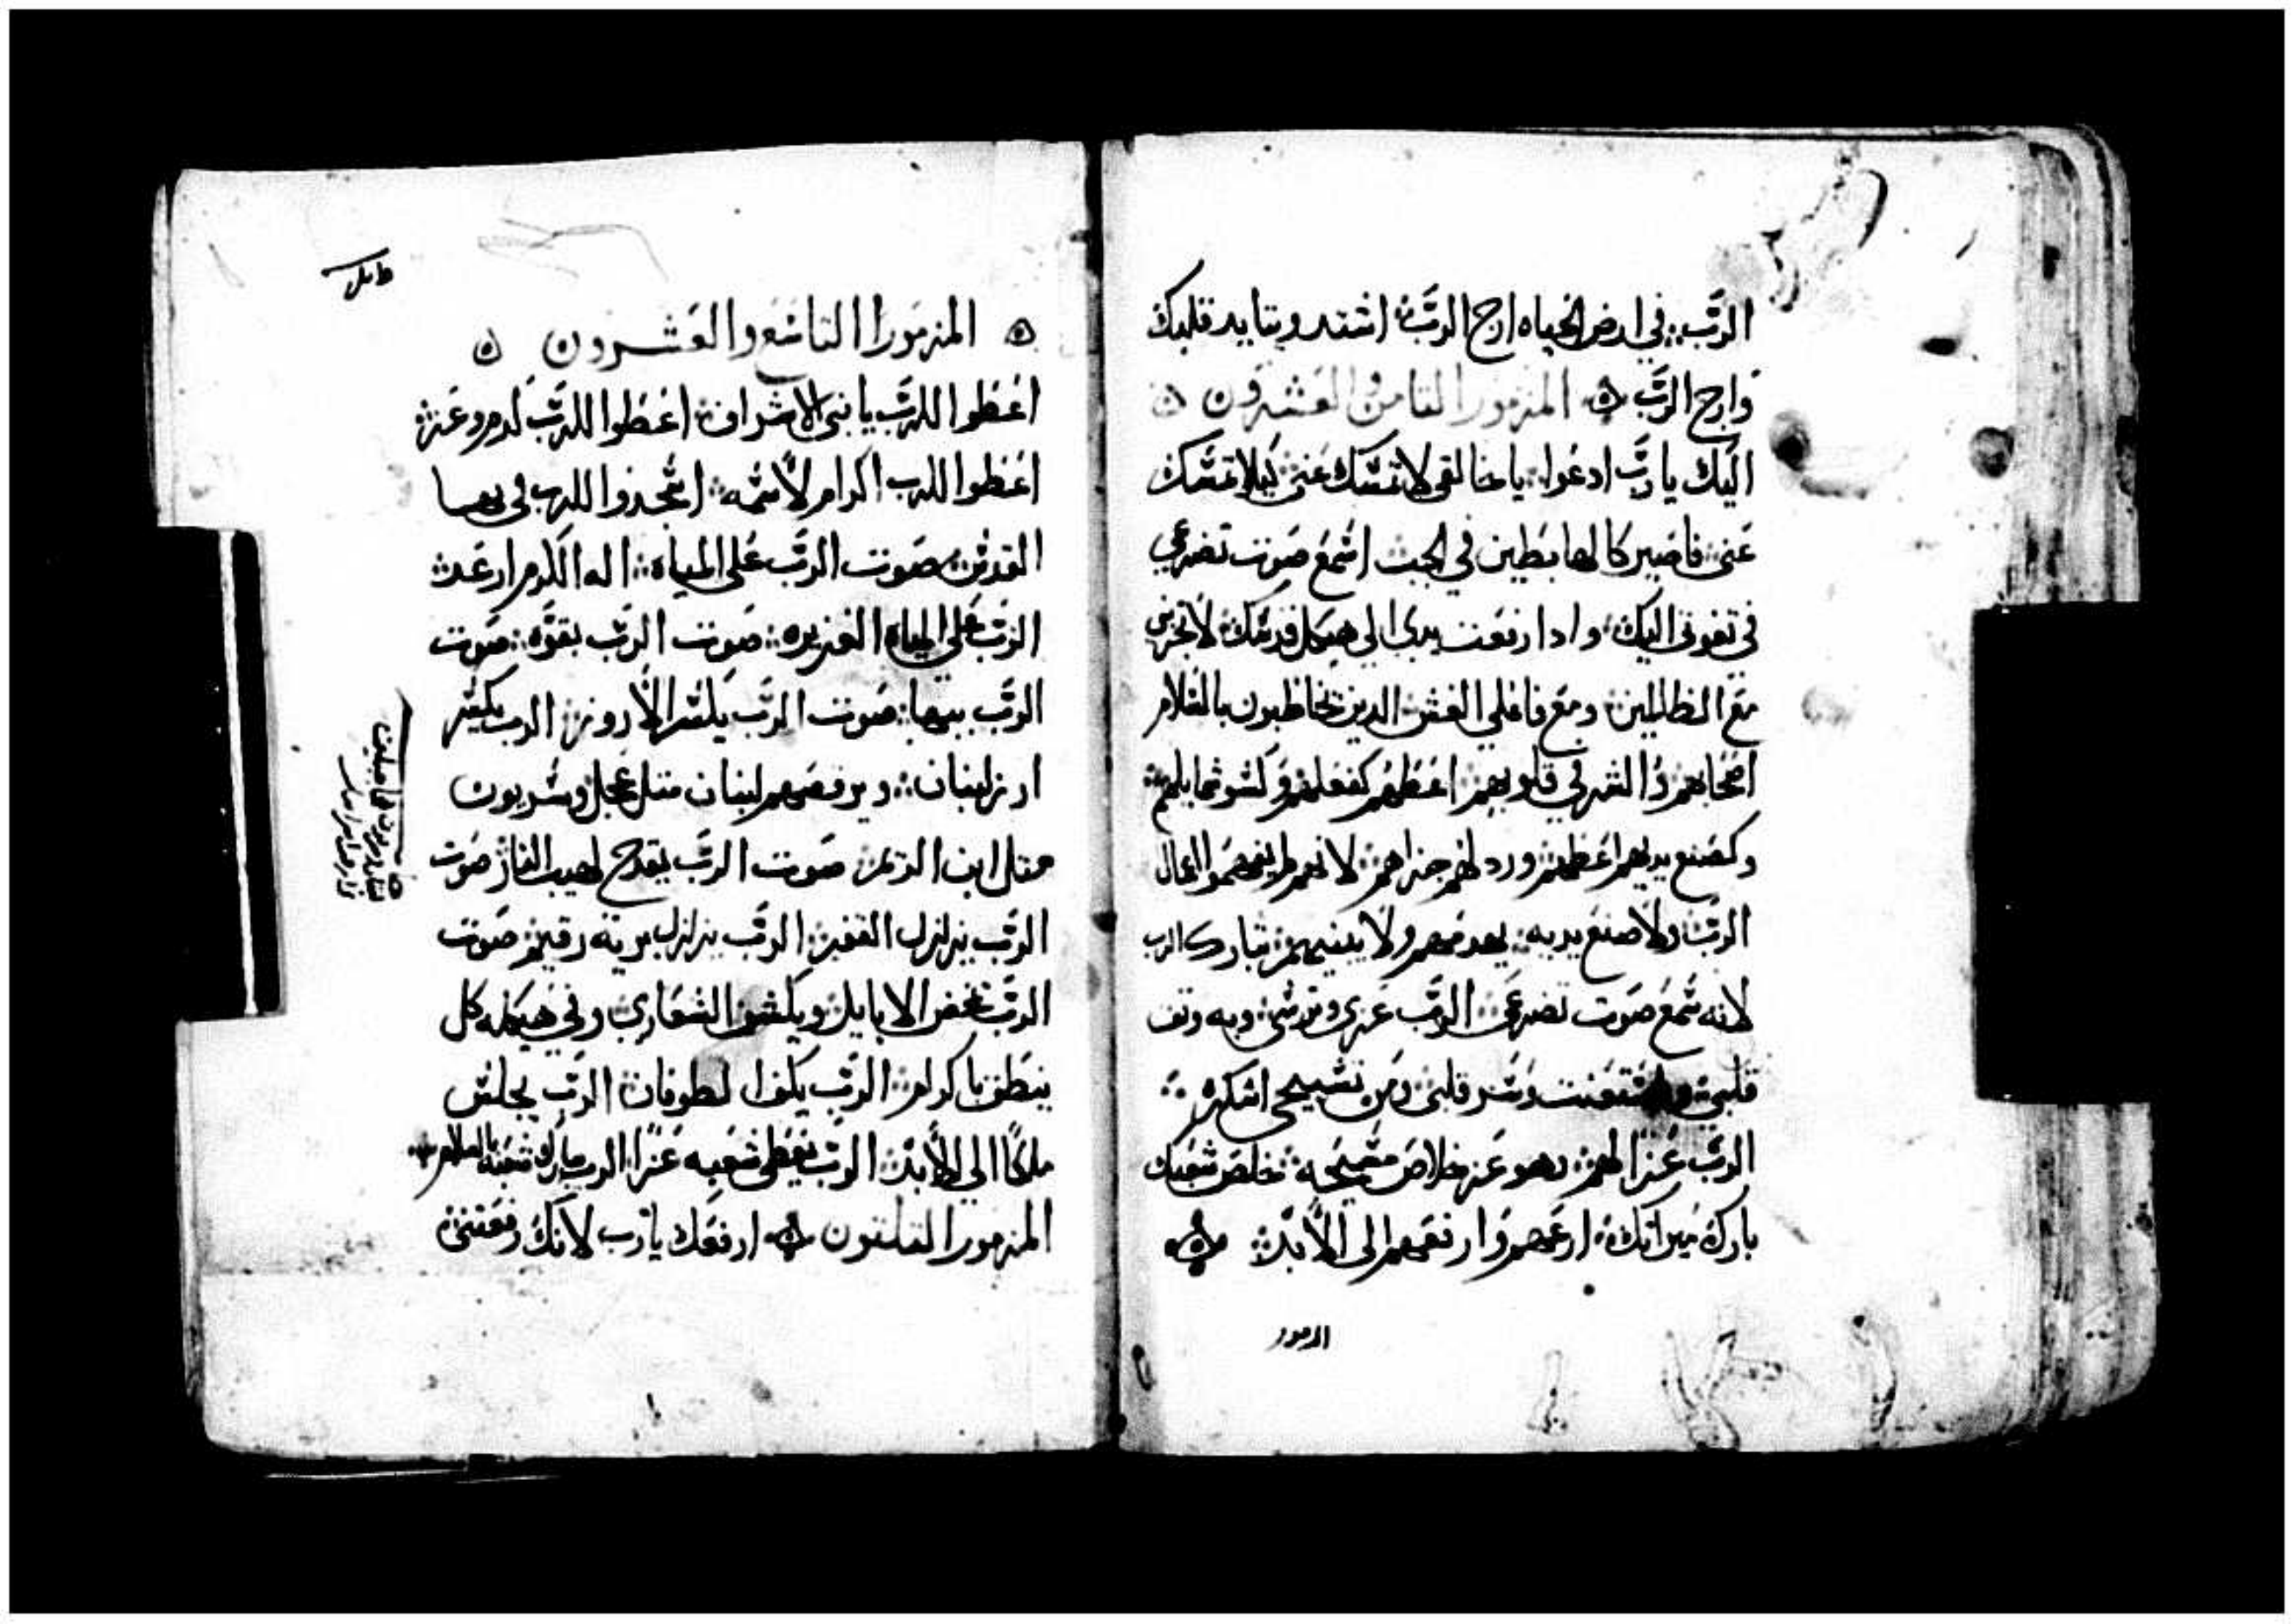 الرَّبّ في ارض الحياه ارج الرَّبّ اشتد ويتايد قلبك
وارج الرَّبّ المزمور الثامن والعشرون
اليك يا رَبّ ادعوا يا خالقى لا تمسك عنى ليلا تمسك
عنى فاصير كالهابطين في الجب اسمع صوت تضرعي
في تغوثى اليك وادا رفعت يدى الي هيكل قدسك لا تجرنى
مع الظالمين ومع فاعلي الغش الدين يخاظبون بالسلام
اصحابهم والشر في قلوبهم اعظهم كفعلهم وكسو عمايلهم
وكصنع يديهم اعظهم ورد لهم جزاهم لانهم لم يفهموا اعمال
الرَّبّ ولا صنع يديه يهدمهم ولا يبنيهم تبارك الرب
لانه سمع صوت تضرعى الرَّبّ عزى وترسى وبه وثق
قلبى واستعنت وسر قلبى ومن تسبيحى اشكره
الرَّبّ عزا لهم وهو عز خلاص مسيحه خلص شعبك
بارك ميراتك ارعهم وارفعهم الى الأبد
المزمور
المزمور التاسع والعشرون
اعظوا للرَّبّ يا بنى الاشراف اعظوا للرَّبّ كرم وعز
اعظوا للرب اكرام لأسمه اسجدوا للرب في بها
القدس صوت الرَّبّ على المياه اله الكرم ارعد
الرَّبّ على المياه الغزيره صوت الرَّبّ بقوَّه صوت
الرَّبّ ببها صوت الرَّبّ يكسر الأروز الرب يكسر
ارز لبنان ويرفصهم لبنان متل عجل وسريون
متل ابن الريم صوت الرَّبّ يقدح لهيب النار صوت
الرَّبّ يزلزل القفر الرَّبّ يزلزل برية رقيم صوت
الرَّبّ تمخض الايايل ويكشف الشعارى وفى هيكله كل
ينطق باكرام الرَّبّ يكفوا لطوفان الرَّبّ يجلس
ملكًا الي الأبد الرَّبّ يعظى شعبه عزًا الرب يبارك شعبه بالسلام
المزمور التلتون ارفعك يا رب لانك رفعتنى